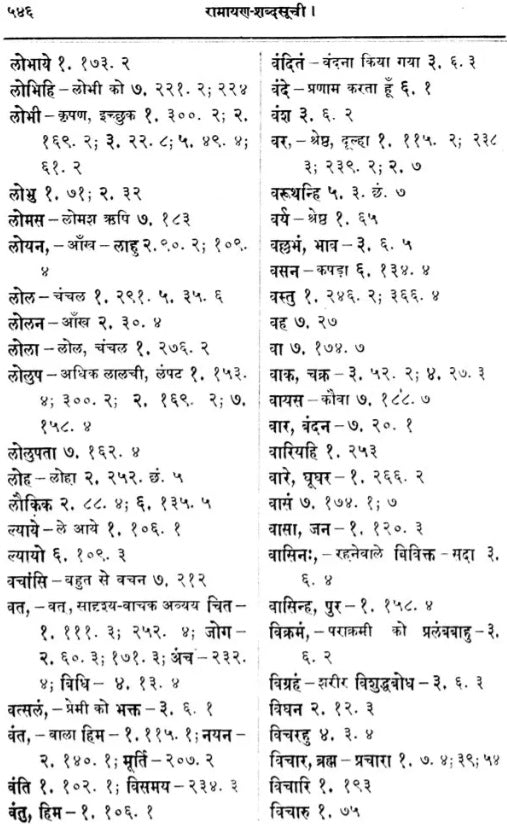 ५४६ रामायण-शब्दसूची।
लोभाये १. १७३. २
लोभिहि – लोभी को ७. २२१. २; २२४
लोभी – कृपण, इच्छुक १. ३००. २; २.
१६९. २; ३. २२. ८; ५. ४९. ४;
६१. २
लोभु १. ७१; २. ३२
लोमस – लोमश ऋषि ७. १८३
लोयन, – आँख – लाहु २. ९०. २; १०९.
४
लोल – चंचल १. २९१. ५. ३५. ६
लोलन – आँख २. ३०. ४
लोला – लोल, चंचल १. २७६. २
लोलुप – अधिक लालची, लंपट १. १५३.
४; ३००. २; २. १६९. २; ७.
१५८. ४
लोलुपता ७. १६२. ४
लोह – लोहा २. २५२. छं. ५
लौकिक २. ८८. ४; ६. १३५. ५
ल्याये – ले आये १. १०६. १
ल्यायो ६. १०९. ३
वचांसि – बहुत से वचन ७. २१२
वत, – वत्, सादृश्य-वाचक अव्यय चित –
१. १११. ३; २५२. ४; जोग –
२. ६०. ३; १७१. ३; अंच – २३२.
४; विधि – ४. १३. ४
वत्सलं, – प्रेमी को भक्त – ३. ६. १
वंत, – वाला हिम – १. ११५. १; नयन –
२. १४०. १; मूर्ति – २०७. २
वंति १. १०२. १; विसमय – २३४. ३
वंतु, हिम – १. १०६. १
वंदितं – वंदना किया गया ३. ६. ३
वंदे – प्रणाम करता हूँ ६. १
वंश ३. ६. २
वर, – श्रेष्ठ, दूल्हा १. ११५. २; २३८
३; २३९. २; २. ७
वरूथन्हि ५. ३. छं. ७
वर्य – श्रेष्ठ १. ६५
वल्लभं, भाव – ३. ६. ५
वसन – कपड़ा ६. १३४. ४
वस्तु १. २४६. २; ३६६. ४
वह ७. २७
वा ७. १७४. ७
वाक, चक्र – ३. ५२. २; ४. २७. ३
वायस – कौवा ७. १८८. ७
वार, बंदन – ७. २०. १
वारियहि १. २५३
वारे, घूघर – १. २६६. २
वासं ७. १७४. १; ७
वासा, जन – १. १२०. ३
वासिनः, – रहनेवाले विविक्त – सदा ३.
६. ४
वासिन्ह, पुर – १. १५८. ४
विक्रमं, – पराक्रमी को प्रलंबबाहु – ३.
६. २
विग्रहं – शरीर विशुद्धबोध – ३. ६. ३
विघन २. १२. ३
विचरहु ४. ३. ४
विचार, ब्रह्म – प्रचारा १. ७. ४; ३९; ५४
विचारि १. १९३
विचारु १. ७५